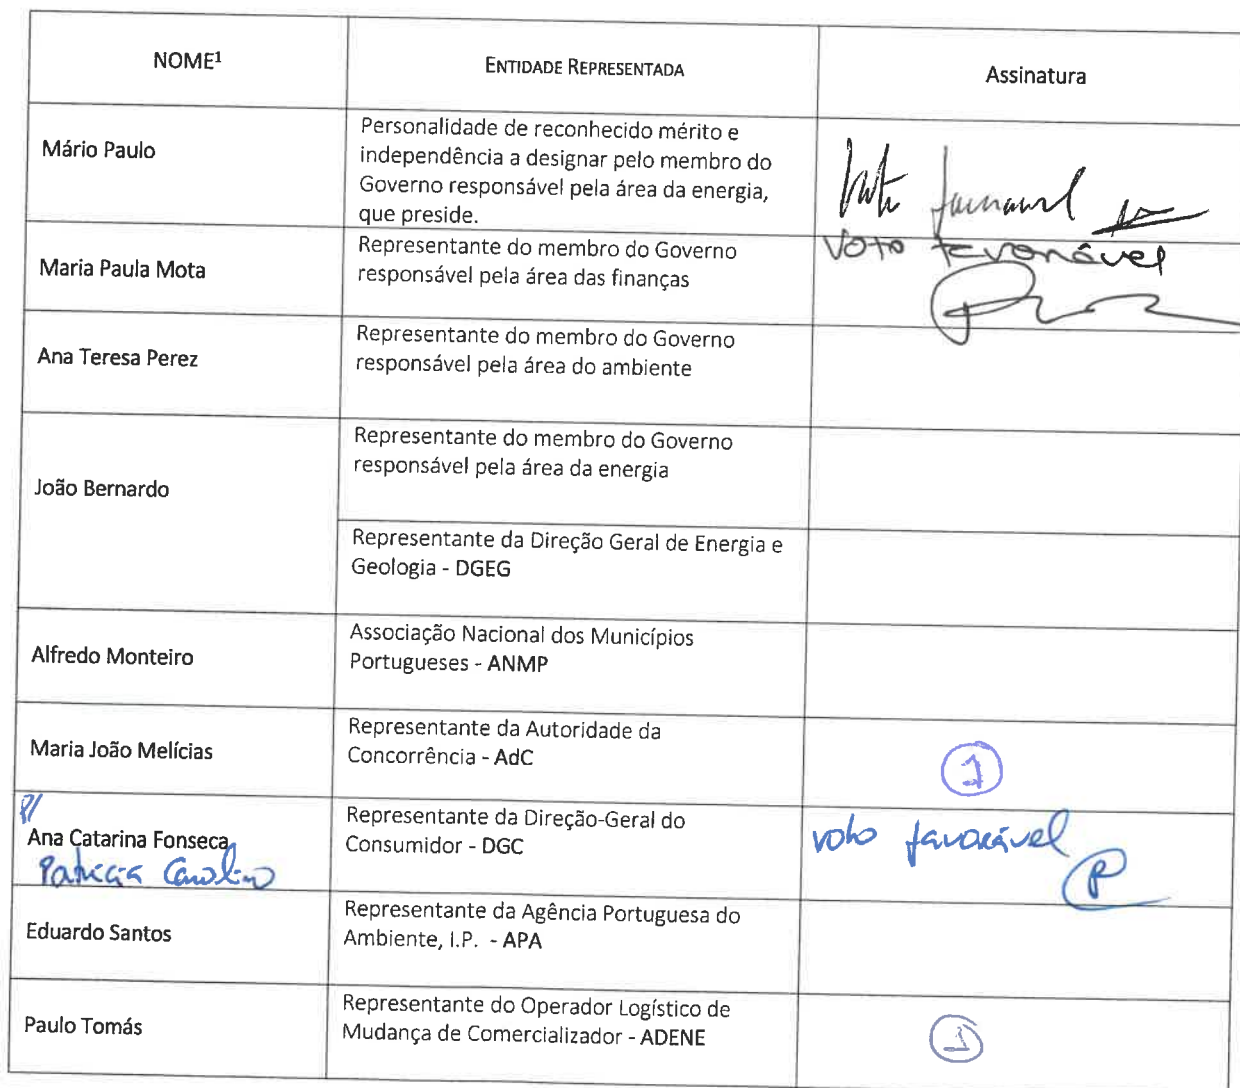 NOME¹
ENTIDADE REPRESENTADA
Assinatura
Mário Paulo
Personalidade de reconhecido mérito e
independência a designar pelo membro do
Governo responsável pela área da energia,
que preside.
Maria Paula Mota
Representante do membro do Governo
responsável pela área das finanças
voto favorável
Ana Teresa Perez
Representante do membro do Governo
responsável pela área do ambiente
João Bernardo
Representante do membro do Governo
responsável pela área da energia
Representante da Direção Geral de Energia e
Geologia - DGEG
Alfredo Monteiro
Associação Nacional dos Municípios
Portugueses - ANMP
Maria João Melícias
Representante da Autoridade da
Concorrência - AdC
1
P/
Ana Catarina Fonseca
Patrícia Carolino
Representante da Direção-Geral do
Consumidor - DGC
voto favorável
P
Eduardo Santos
Representante da Agência Portuguesa do
Ambiente, I.P. - APA
Paulo Tomás
Representante do Operador Logístico de
Mudança de Comercializador - ADENE
1